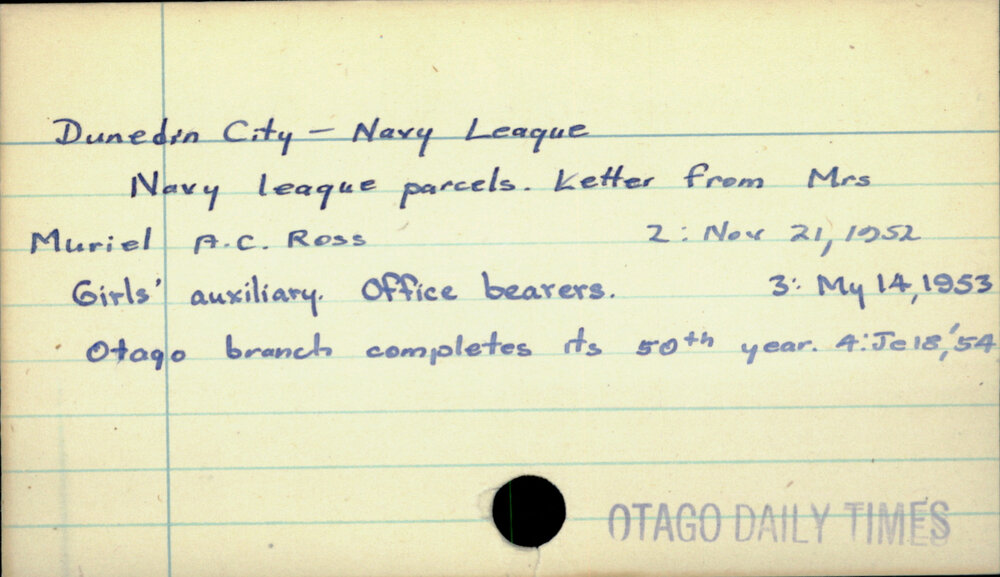 Dunedin City - Navy League
Navy league parcels. Letter from Mrs
Muriel A.C. Ross 2: Nov 21, 1952
Girls' auxiliary. Office bearers. 3: My 14, 1953
Otago branch completes its 50th year. 4: Je 18, '54
OTAGO DAILY TIMES